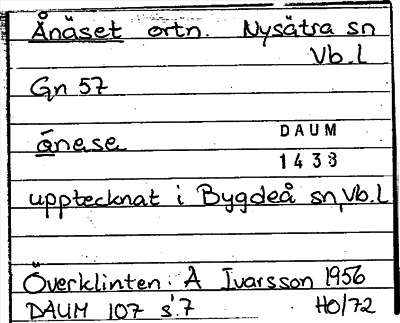 Ånäset ortn. Nysätra sn
Vb.l
Gn 57
ånese DAUM
1438
upptecknat i Bygdeå sn, Vb.l
Överklinten: A Ivarsson 1956
DAUM 107 s.7 HO/72